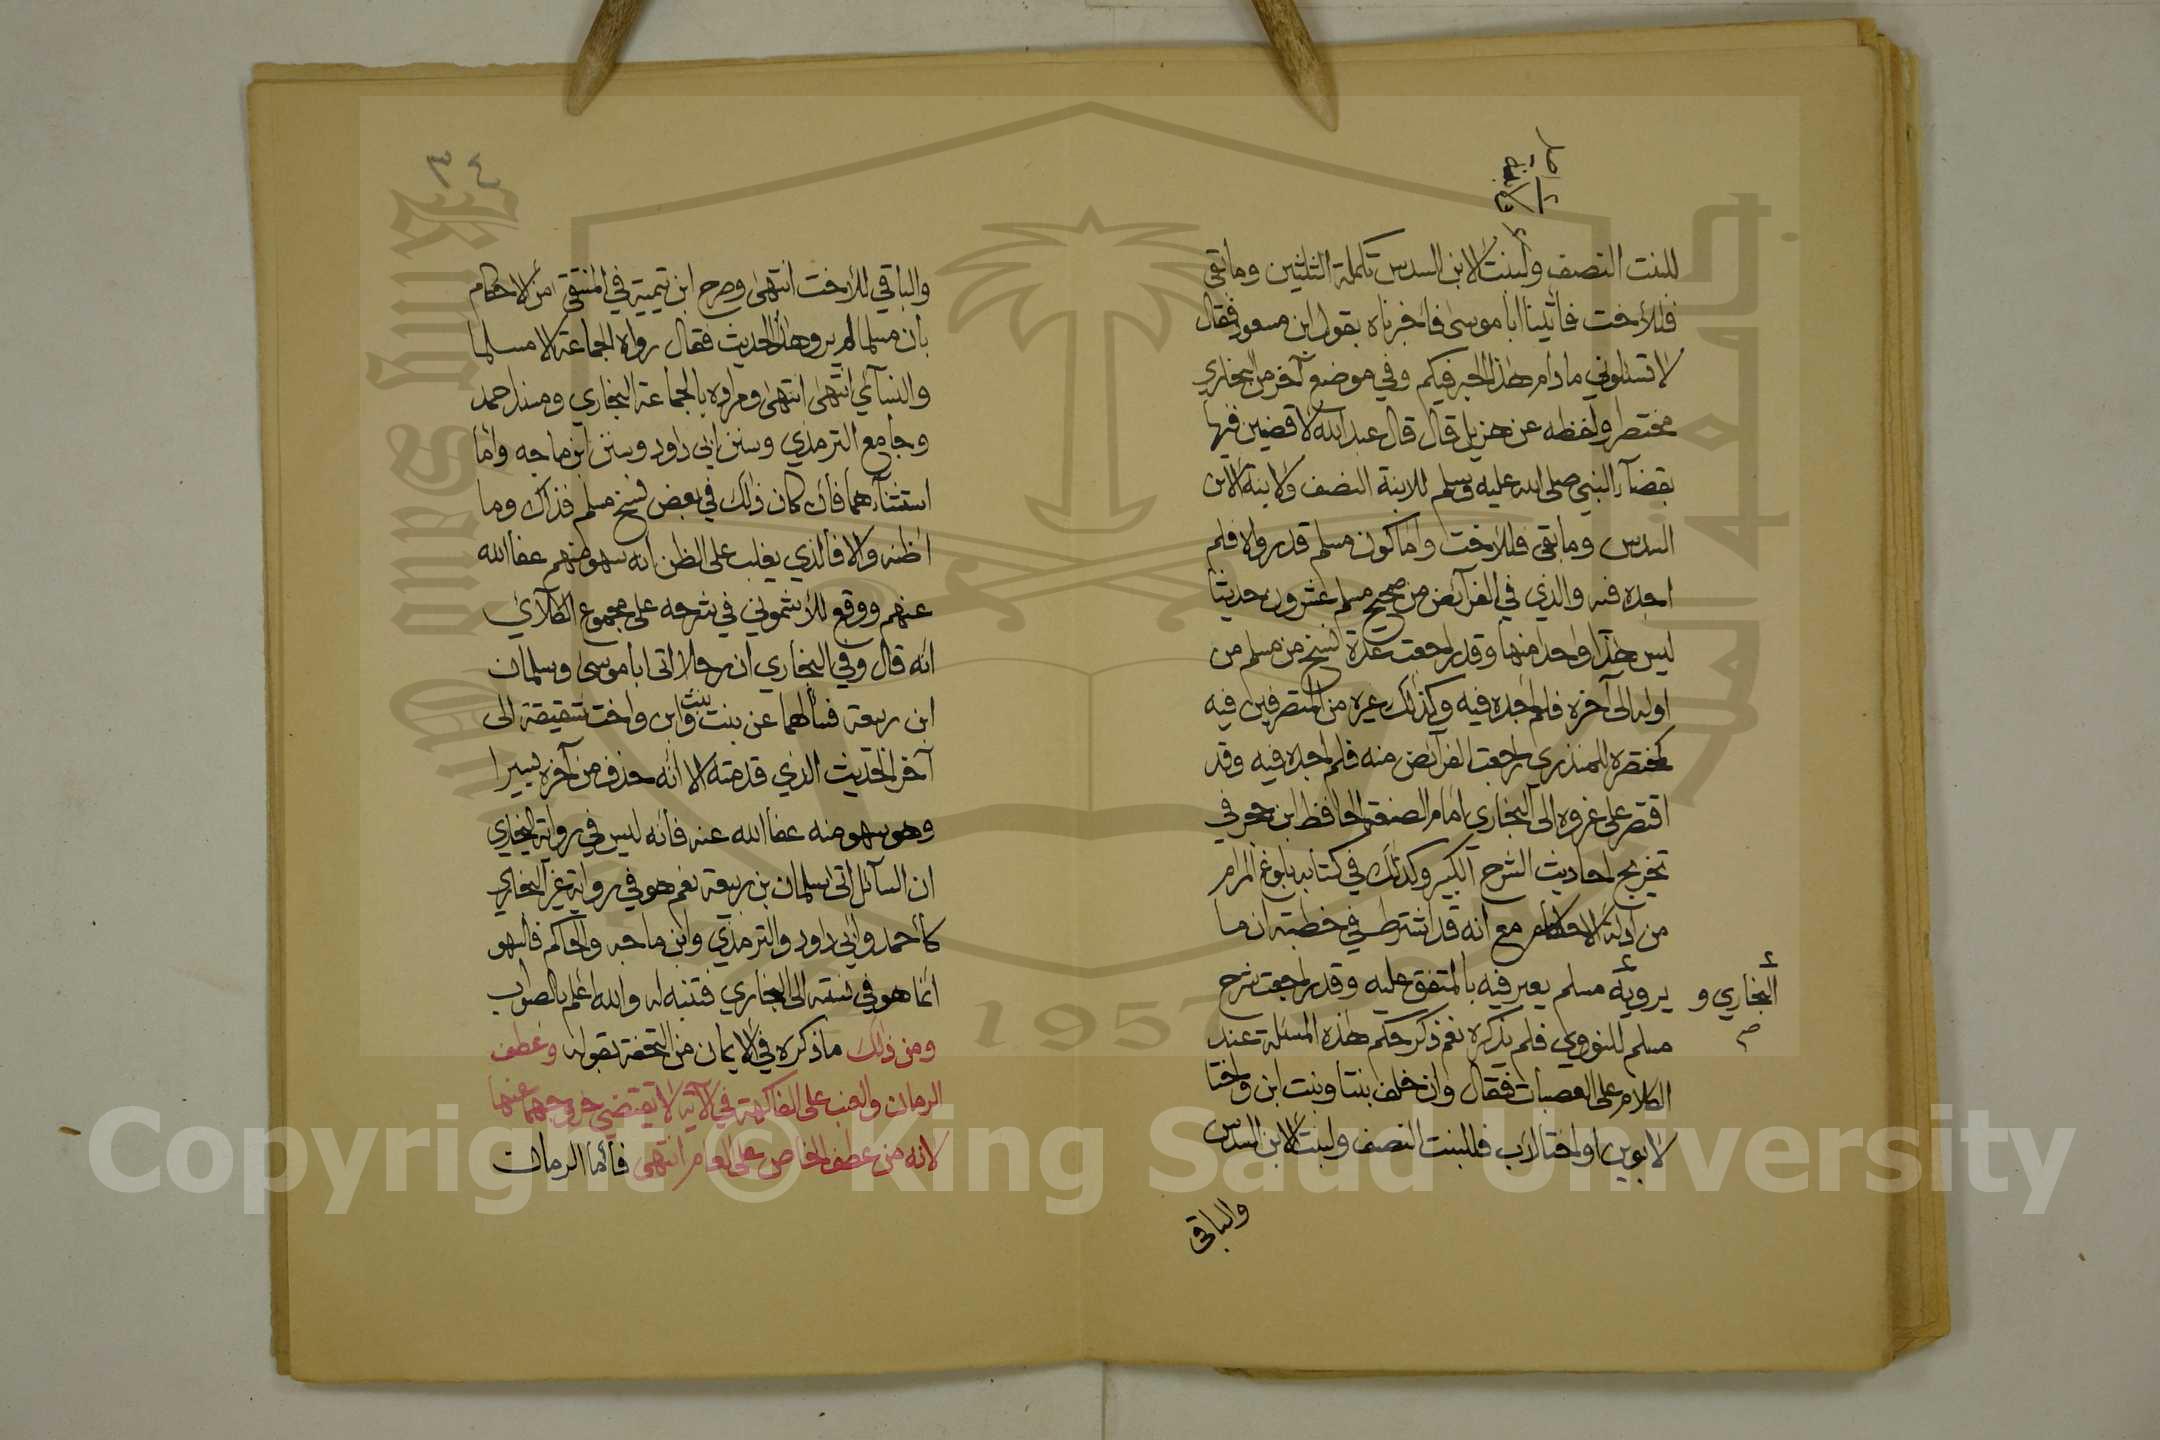 للبنت النصف ولبنت الابن السدس تكملة الثلثين وما بقي
فللأخت فأتينا ابا موسى فاخبرناه بقول ابن مسعود فقال
لا تسئلوني مادام هذا الحبر فيكم وفي موضع آخر من البخاري
مختصرا ولفظه عن هزيل قال قال عبد الله لاقضين فيها
بقضآء النبي صلى الله عليه وسلم للابنة النصف ولابنة الابن
السدس وما بقي فللأخت واما كون مسلم قد رواه فلم
اجده فيه والذي في الفرآئض من صحيح مسلم عشرون حديثا
ليس هذا واحد منها وقد راجعت عدة نسخ من مسلم من
اوله الى آخره فلم اجده فيه وكذلك غيره من المتصرفين فيه
كمختصره للمنذري راجعت الفرآئض منه فلم اجده فيه وقد
اقتصر على عزوه الى البخاري امام الصنعة الحافظ ابن حجر في
تخريج احاديث الشرح الكبير وكذلك في كتابه بلوغ المرام
من ادلة الاحكام مع انه قد اشترط في خطبته ان ما
يرويه مسلم يعبر فيه بالمتفق عليه وقد راجعت شرح
البخاري و
صح
مسلم للنووي فلم يذكره نعم ذكر حكم هذه المسئلة عند
الكلام على العصبات فقال وان خلف بنتا وبنت ابن واختا
لابوين او اختا لأب فللبنت النصف ولبنت الابن السدس
والباقي
٣٤
والباقي للأخت انتهى وصرح ابن تيمية في المنتقى من الاحكام
بان مسلما لم يرو هذا الحديث فقال رواه الجماعة الا مسلما
والنسآئي انتهى انتهى ومراده بالجماعة البخاري ومسند احمد
وجامع الترمذي وسنن ابي داود وسنن ابن ماجه واما
استثنآءهما فان كان ذلك في بعض نسخ مسلم فذاك وما
اظنه والا فالذي يغلب على الظن انه سهو منهم عفا الله
عنهم ووقع للأشموني في شرحه على مجموع الكلآئي
انه قال وفي البخاري ان رجلا اتى ابا موسى وسلمان
ابن ربيعة فسألهما عن بنت وبنت ابن واخت شقيقة الى
آخر الحديث الذي قدمته الا انه حذف من آخره يسيرا
وهو سهو منه عفا الله عنه فانه ليس في رواية البخاري
ان السآئل اتى سلمان بن ربيعة نعم هو في رواية غير البخاري
كأحمد وابي داود والترمذي وابن ماجه والحاكم فالسهو
انما هو في نسبته الى البخاري فتنبه له والله اعلم بالصواب
ومن ذلك ما ذكره في الايمان من التحفة بقوله وعطف
الرمان والعنب على الفاكهة في الآية لا يقتضي خروجهما عنها
لانه من عطف الخاص على العام انتهى فأما الرمان
Copyright © King Saud University
جامعة الملك سعود
King Saud University
1957